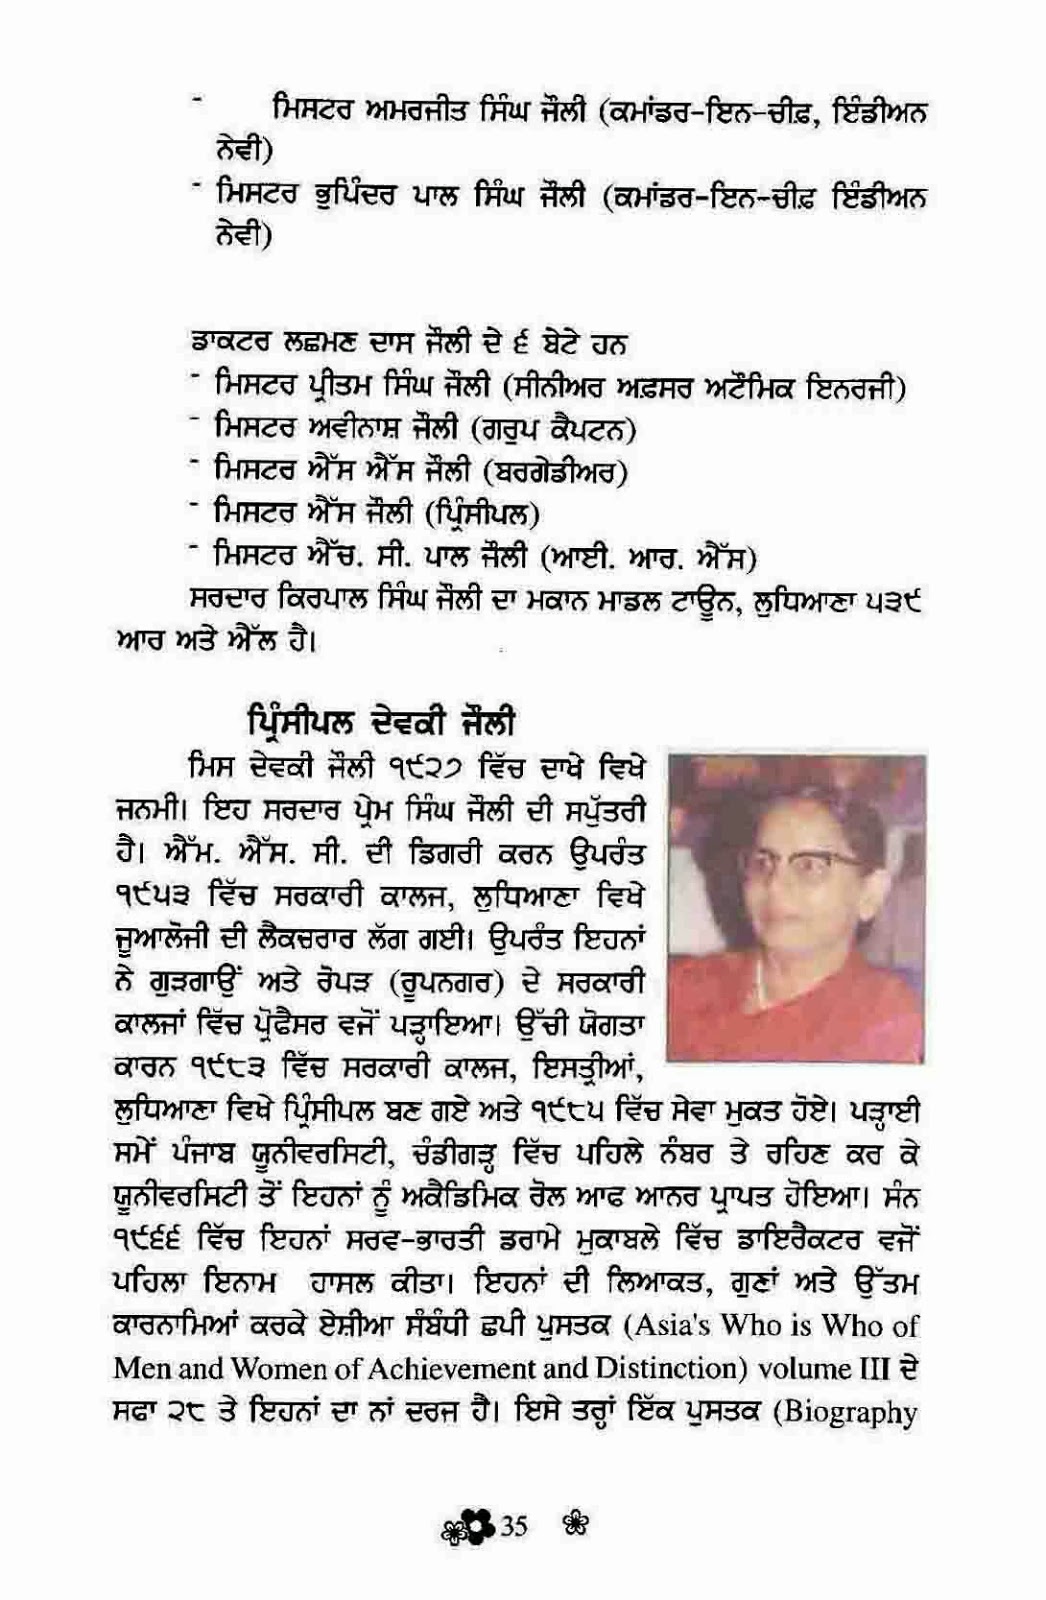 - ਮਿਸਟਰ ਅਮਰਜੀਤ ਸਿੰਘ ਜੌਲੀ (ਕਮਾਂਡਰ-ਇਨ-ਚੀਫ਼, ਇੰਡੀਅਨ
ਨੇਵੀ)
- ਮਿਸਟਰ ਭੁਪਿੰਦਰ ਪਾਲ ਸਿੰਘ ਜੌਲੀ (ਕਮਾਂਡਰ-ਇਨ-ਚੀਫ਼ ਇੰਡੀਅਨ
ਨੇਵੀ)
ਡਾਕਟਰ ਲਛਮਣ ਦਾਸ ਜੌਲੀ ਦੇ ੬ ਬੇਟੇ ਹਨ
- ਮਿਸਟਰ ਪ੍ਰੀਤਮ ਸਿੰਘ ਜੌਲੀ (ਸੀਨੀਅਰ ਅਫ਼ਸਰ ਅਟੌਮਿਕ ਇਨਰਜੀ)
- ਮਿਸਟਰ ਅਵੀਨਾਸ਼ ਜੌਲੀ (ਗਰੁਪ ਕੈਪਟਨ)
- ਮਿਸਟਰ ਐੱਸ ਐੱਸ ਜੌਲੀ (ਬਰਗੇਡੀਅਰ)
- ਮਿਸਟਰ ਐੱਸ ਜੌਲੀ (ਪ੍ਰਿੰਸੀਪਲ)
- ਮਿਸਟਰ ਐੱਚ. ਸੀ. ਪਾਲ ਜੌਲੀ (ਆਈ. ਆਰ. ਐੱਸ)
ਸਰਦਾਰ ਕਿਰਪਾਲ ਸਿੰਘ ਜੌਲੀ ਦਾ ਮਕਾਨ ਮਾਡਲ ਟਾਊਨ, ਲੁਧਿਆਣਾ ੫੩੯
ਆਰ ਅਤੇ ਐੱਲ ਹੈ।
ਪ੍ਰਿੰਸੀਪਲ ਦੇਵਕੀ ਜੌਲੀ
ਮਿਸ ਦੇਵਕੀ ਜੌਲੀ ੧੯੨੭ ਵਿੱਚ ਦਾਖੇ ਵਿਖੇ
ਜਨਮੀ। ਇਹ ਸਰਦਾਰ ਪ੍ਰੇਮ ਸਿੰਘ ਜੌਲੀ ਦੀ ਸਪੁੱਤਰੀ
ਹੈ। ਐੱਮ. ਐੱਸ. ਸੀ. ਦੀ ਡਿਗਰੀ ਕਰਨ ਉਪਰੰਤ
੧੯੫੩ ਵਿੱਚ ਸਰਕਾਰੀ ਕਾਲਜ, ਲੁਧਿਆਣਾ ਵਿਖੇ
ਜੂਆਲੋਜੀ ਦੀ ਲੈਕਚਰਾਰ ਲੱਗ ਗਈ। ਉਪਰੰਤ ਇਹਨਾਂ
ਨੇ ਗੁੜਗਾਉਂ ਅਤੇ ਰੋਪੜ (ਰੂਪਨਗਰ) ਦੇ ਸਰਕਾਰੀ
ਕਾਲਜਾਂ ਵਿੱਚ ਪ੍ਰੋਫੈਸਰ ਵਜੋਂ ਪੜ੍ਹਾਇਆ। ਉੱਚੀ ਯੋਗਤਾ
ਕਾਰਨ ੧੯੮੩ ਵਿੱਚ ਸਰਕਾਰੀ ਕਾਲਜ, ਇਸਤ੍ਰੀਆਂ,
ਲੁਧਿਆਣਾ ਵਿਖੇ ਪ੍ਰਿੰਸੀਪਲ ਬਣ ਗਏ ਅਤੇ ੧੯੮੫ ਵਿੱਚ ਸੇਵਾ ਮੁਕਤ ਹੋਏ। ਪੜ੍ਹਾਈ
ਸਮੇਂ ਪੰਜਾਬ ਯੂਨੀਵਰਸਿਟੀ, ਚੰਡੀਗੜ੍ਹ ਵਿੱਚ ਪਹਿਲੇ ਨੰਬਰ ਤੇ ਰਹਿਣ ਕਰ ਕੇ
ਯੂਨੀਵਰਸਿਟੀ ਤੋਂ ਇਹਨਾਂ ਨੂੰ ਅਕੈਡਿਮਿਕ ਰੋਲ ਆਫ ਆਨਰ ਪ੍ਰਾਪਤ ਹੋਇਆ। ਸੰਨ
੧੯੬੬ ਵਿੱਚ ਇਹਨਾਂ ਸਰਵ-ਭਾਰਤੀ ਡਰਾਮੇ ਮੁਕਾਬਲੇ ਵਿੱਚ ਡਾਇਰੈਕਟਰ ਵਜੋਂ
ਪਹਿਲਾ ਇਨਾਮ ਹਾਸਲ ਕੀਤਾ। ਇਹਨਾਂ ਦੀ ਲਿਆਕਤ, ਗੁਣਾਂ ਅਤੇ ਉੱਤਮ
ਕਾਰਨਾਮਿਆਂ ਕਰਕੇ ਏਸ਼ੀਆ ਸੰਬੰਧੀ ਛਪੀ ਪੁਸਤਕ (Asia's Who is Who of
Men and Women of Achievement and Distinction) volume III ਦੇ
ਸਫਾ ੨੮ ਤੇ ਇਹਨਾਂ ਦਾ ਨਾਂ ਦਰਜ ਹੈ। ਇਸੇ ਤਰ੍ਹਾਂ ਇੱਕ ਪੁਸਤਕ (Biography
35